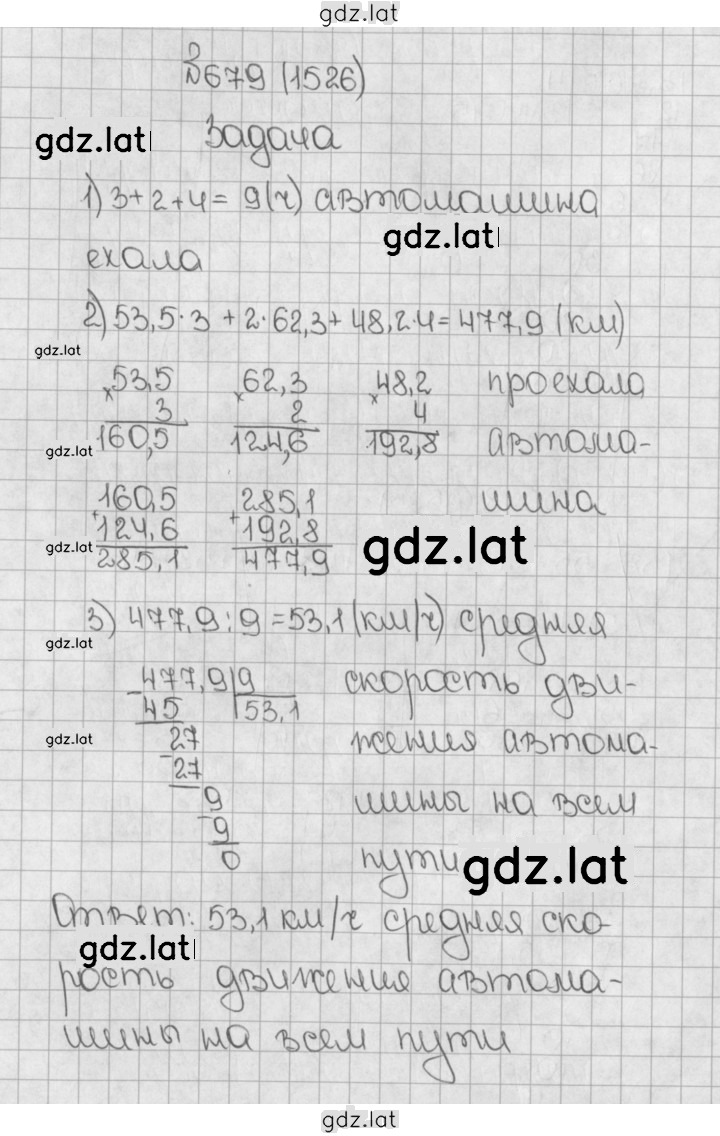 gdz.lat
№679 (1526)
gdz.lat
Задача
1) 3+2+4= 9(ч) автомашина
gdz.lat
ехала
2) 53,5·3 +2·62,3+48,2·4=477,9 (км)
gdz.lat
×53,5 ×62,3 ×48,2 проехала
3 2 4
160,5 124,6 192,8 автома-
gdz.lat
160,5 285,1 шина
+124,6 +192,8
gdz.lat 285,1 477,9 gdz.lat
3) 477,9:9=53,1(км/ч) средняя
gdz.lat
-477,9|9 скорость дви-
45 53,1
gdz.lat -27 жения автома-
27
-9 шины на всем
9
0 пути gdz.lat
Ответ: 53,1 км/ч средняя ско-
gdz.lat
рость движения автома-
шины на всем пути
gdz.lat